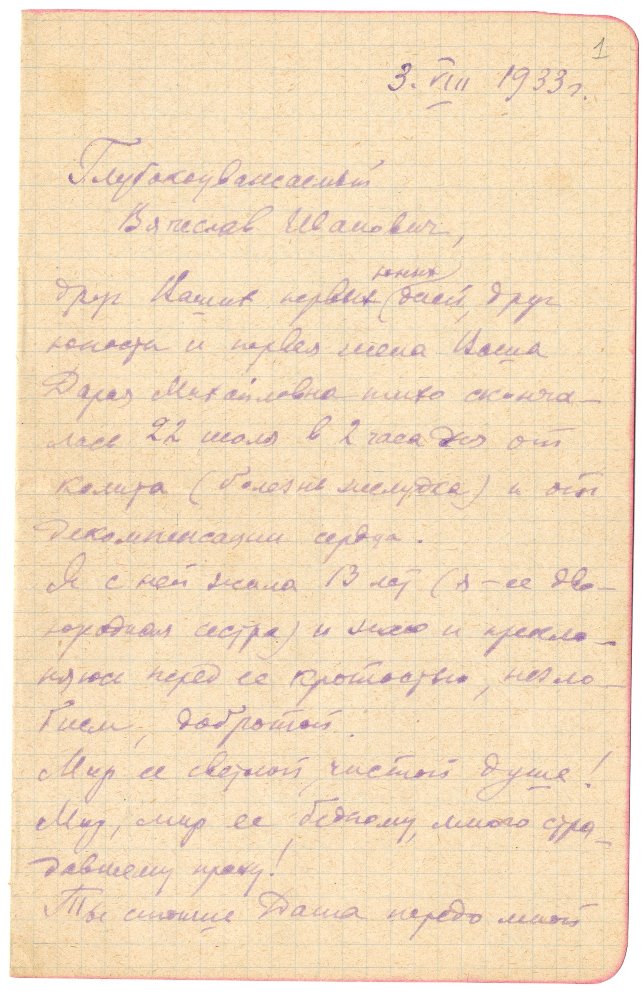 1
3. VIII 1933 г.
Глубокоуважаемый
Вячеслав Иванович,
юных
друг Ваших первых дней, друг
юности и первая жена Ваша
Дарья Михайловна тихо сконча-
лась 22 июля в 2 часа дня от
колита (болезнь желудка) и от
декомпенсации сердца.
Я с ней жила 13 лет (я – ее дво-
юродная сестра) и знаю и прекло-
няюсь перед ее кротостью, незло-
бием, добротой.
Мир ее светлой, чистой душе!
Мир, мир ее бедному, много стра-
давшему праху!
Ты стоишь Даша передо мной